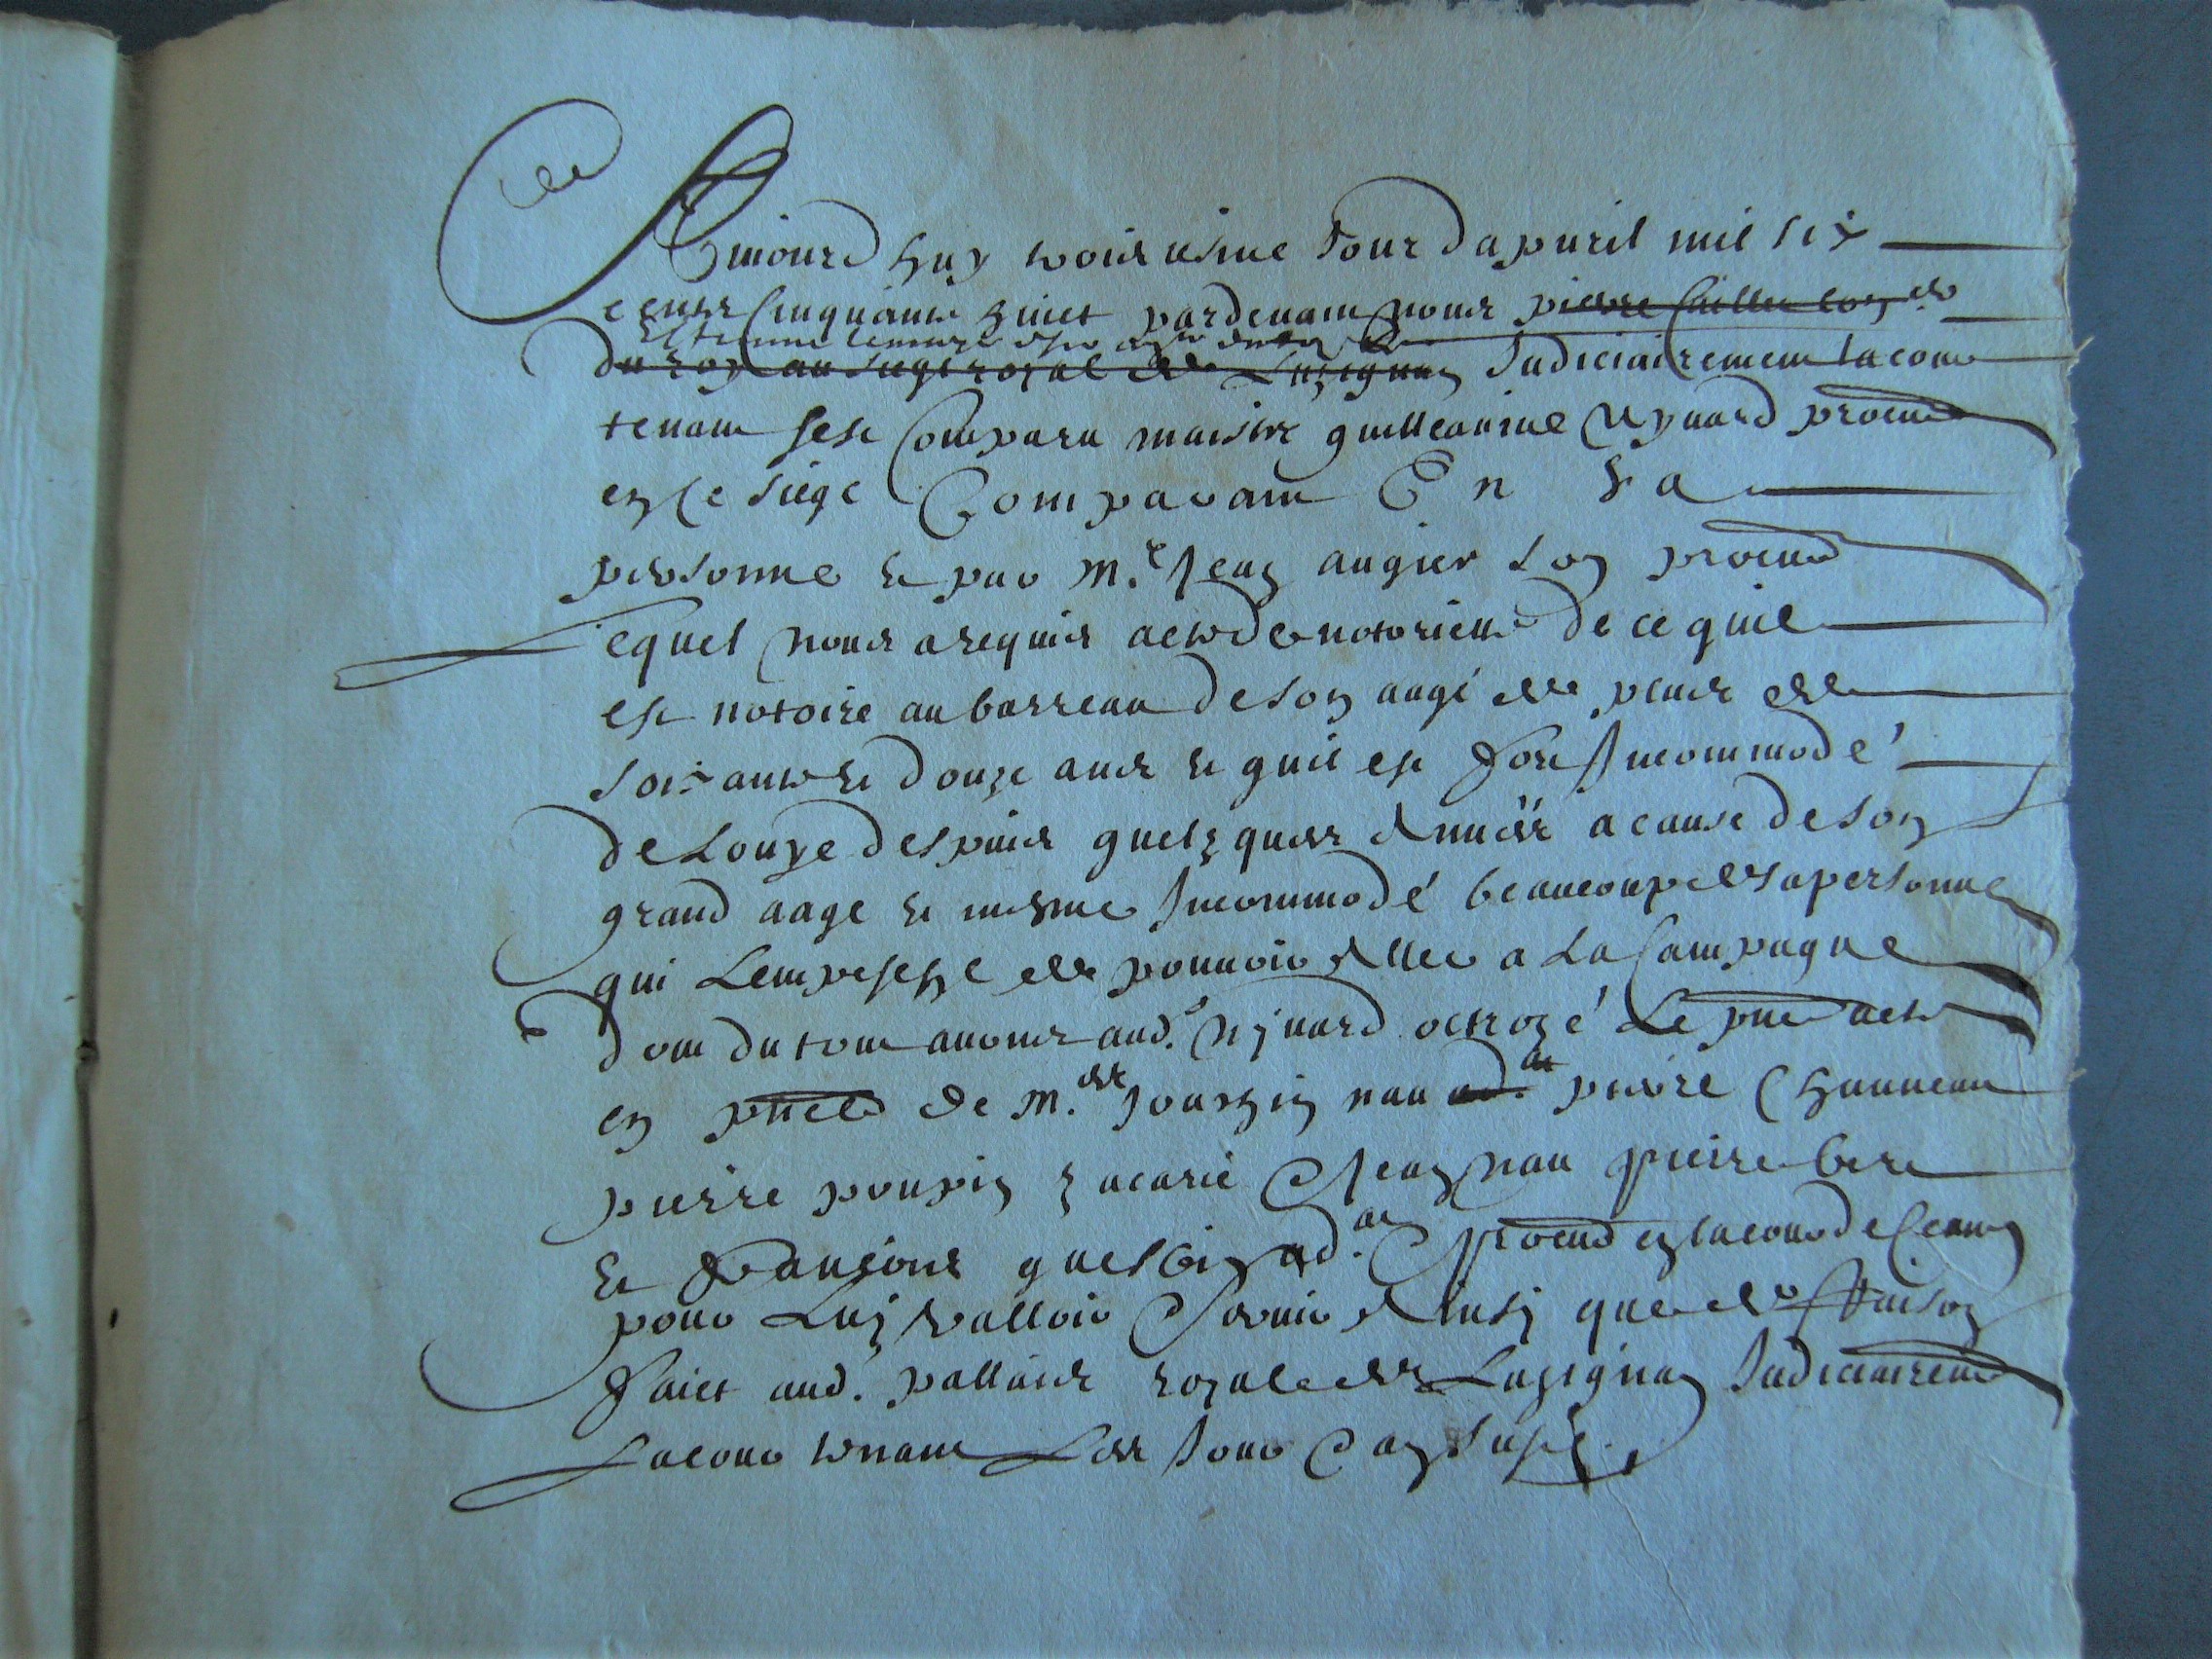 Aujourdhuy troisiesme Jour dapvril mil six
centz Cinquante huict pardevant nous pierre
Estienne
du roy au siege royal de Luzignan Judiciairement la cour
tenant sest Comparu maistre guilleaume Nynard procur
en ce siege Comparant En sa
personne et par M.e Jean augier son procur
lequel nous a requis acte de notoriette de ce quil
est notoire au barreau de son aage de plus de
soixante et douze ans et quil est fort Incommodé
de Louye despuis quelzques Années a cause de son
grand aage et mesme Incommodé beaucoup de sa personne
qui Lempesche de pouvoir Aller a La Campagne
dont du tout avons aud. Nynard octroyé Le pnt acte
en pnce de M.es Jourdain nau ad.at pierre Chauneau
pierre poupin zacarie Jean nau pierre
et françois quesbin ad.at procur en la cour de Ceans
pour Luy valloir Servir Ainsy que de Raison
faict aud. pallais royal de Luzignan Judiciairemt
La cour tenant Les Jour et an susd.